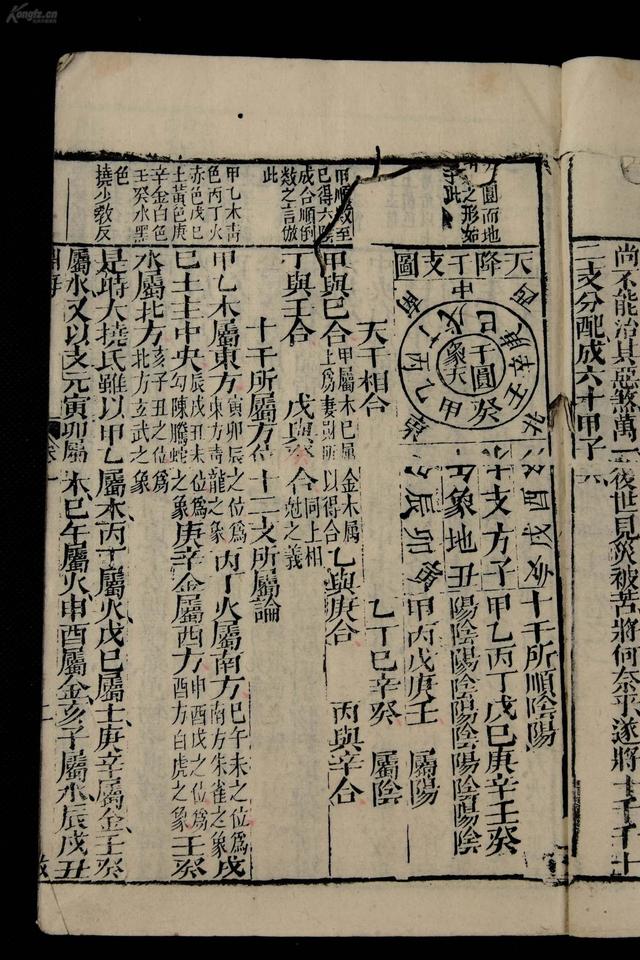 Kongfz.cn
尚不能治其惡煞萬一後世見災被苦將何奈乎遂將十干十
二支分配成六十甲子
天降干支圖
中
戊己
干圓
象天
壬
癸
甲
乙
丙
丁
南
西
北
東
十支方子
象地丑
酉戌亥
辰卯寅
十干所順陰陽
甲乙丙丁戊己庚辛壬癸
陽陰陽陰陽陰陽陰陽陰
甲丙戊庚壬 屬陽
乙丁己辛癸 屬陰
天干相合
甲與己合 甲屬木己屬
土為妻財所
金木屬
以得合 乙與庚合 丙與辛合
丁與壬合 戊與癸合 同上相
尅之義
十干所屬方位 十二支所屬論
甲乙木屬東方 寅卯辰之位為
東方青龍之象 丙丁火屬南方 巳午未之位為
南方朱雀之象 戊
己土主中央 辰戌丑未位為
勾陳螣蛇之象 庚辛金屬西方 申酉戌之位為
西方白虎之象 壬癸
水屬北方 亥子丑之位為
北方玄武之象
是時大撓氏雖以甲乙屬木丙丁屬火戊己屬土庚辛屬金壬癸
屬水又以支元寅卯屬木巳午屬火申酉屬金亥子屬水辰戌丑
圓而地
之形如
此
甲順數至
己得六數
成合順倒
數之言倣
此
甲乙木青
色丙丁火
赤色戊己
土黃色庚
辛金白色
壬癸水黑
色
撓少教反
淵海
卷一
二